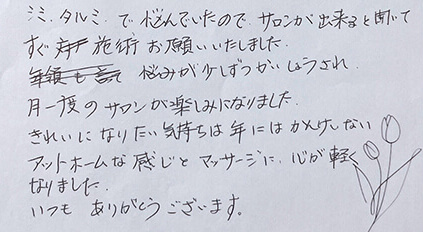 シミ、タルミ、で悩んでいたので、サロンが出来ると聞いて
すぐ 施術お願いいたしました。
悩みが少しずつかいしょうされ、
月一度のサロンが楽しみになりました。
きれいになりたい気持ちは年にはかんけいしない
アットホームな感じとマッサージに、心が軽く
なりました。
いつも ありがとうございます。